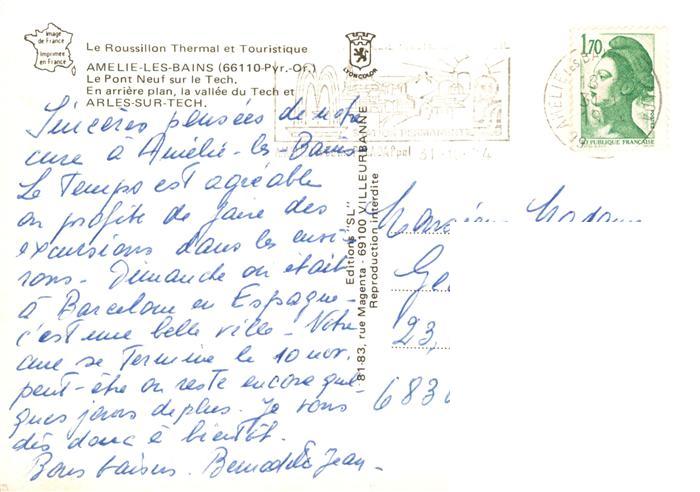 Image
de France
Imprimée
en France
Le Roussillon Thermal et Touristique
AMELIE-LES-BAINS (66110-Pyr.-Or.)
Le Pont Neuf sur le Tech.
En arrière plan, la vallée du Tech et
ARLES-SUR-TECH.
LYONCOLOR
1,70
REPUBLIQUE FRANÇAISE
Sincères pensées de notre
cure à Amélie-les-Bains
Le Temps est agréable
on profite de faire des
excursions dans les envi-
rons. Dimanche on était
à Barcelone en Espagne-
c'est une belle ville - Notre
cure se Termine le 10 nov.
peut-être on reste encore quel-
ques jours de plus. Je vous
dis donc à bientôt.
Bons baisers. Jean-
Editions "SL"
81-83, rue Magenta - 69100 VILLEURBANNE
Reproduction interdite
Ge
23,